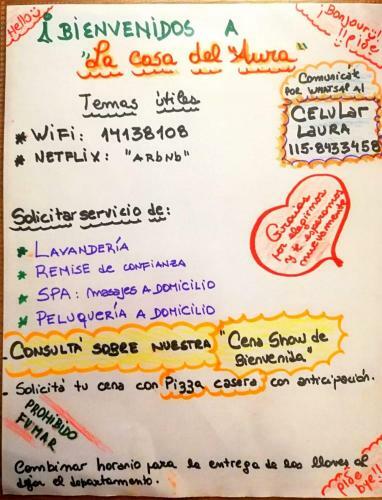 Hello
Bonjour!!
¡¡pide
¡BIENVENIDOS A
"La casa del Aura"
Comunicáte
POR WHATSAP Al
CELULAR
LAURA
115-8433458
Temas útiles
* WiFi: 14138108
* NETFLIX: "ARbNb"
Gracias
por elegirnos
y te esperamos
nuevamente
Solicitar servicio de:
* LAVANDERÍA
* REMISE DE CONFIANZA
* SPA: masajes A DOMICILIO
* PELUQUERÍA A DOMICILIO
- CONSULTÁ SOBRE NUESTRA "Cena Show de
Bienvenida"
- Solicitá tu cena con Pizza casera con anticipación.
PROHIBIDO
FUMAR
Combinar horario para la entrega de las llaves al
dejar el departamento.
bye!!